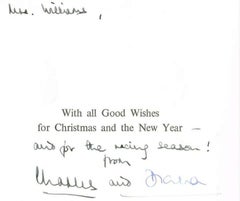 Mrs. Williams,
With all Good Wishes
for Christmas and the New Year —
and for the racing season!
from
Charles and Diana